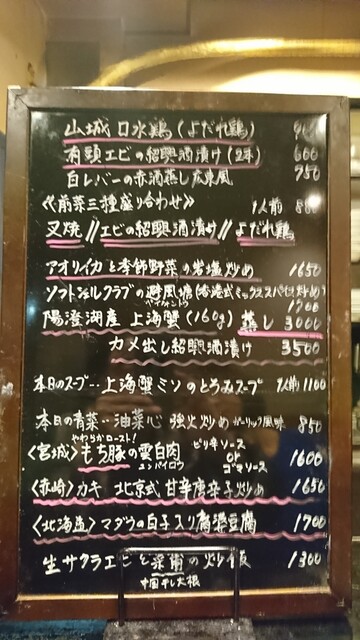 山城 口水鶏 (よだれ鶏)
有頭エビの紹興酒漬け (2本) 600
白レバーの赤酒蒸し 広東風 750
《前菜三種盛り合わせ》 1人前
叉焼 // エビの紹興酒漬け // よだれ鶏
アオリイカと季節野菜の岩塩炒め 1650
ソフトシェルクラブの避風塘(香港式ミックススパイス炒め)
陽澄湖産 上海蟹 (160g) 蒸し 3000
カメ出し紹興酒漬け 3500
本日のスープ‥上海蟹ミソのとろみスープ 1人前1100
本日の青菜‥油菜心 強火炒め ガーリック風味 850
やわらかロースト!
〈宮城〉もち豚の雲白肉 ピリ辛ソース or ゴマソース 1600
ユンパイロウ
〈赤崎〉カキ 北京式 甘辛唐辛子炒め 1650
〈北海道〉マダラの白子入り麻婆豆腐 1700
生サクラエビと菜甫の炒飯 1300
中国干し大根